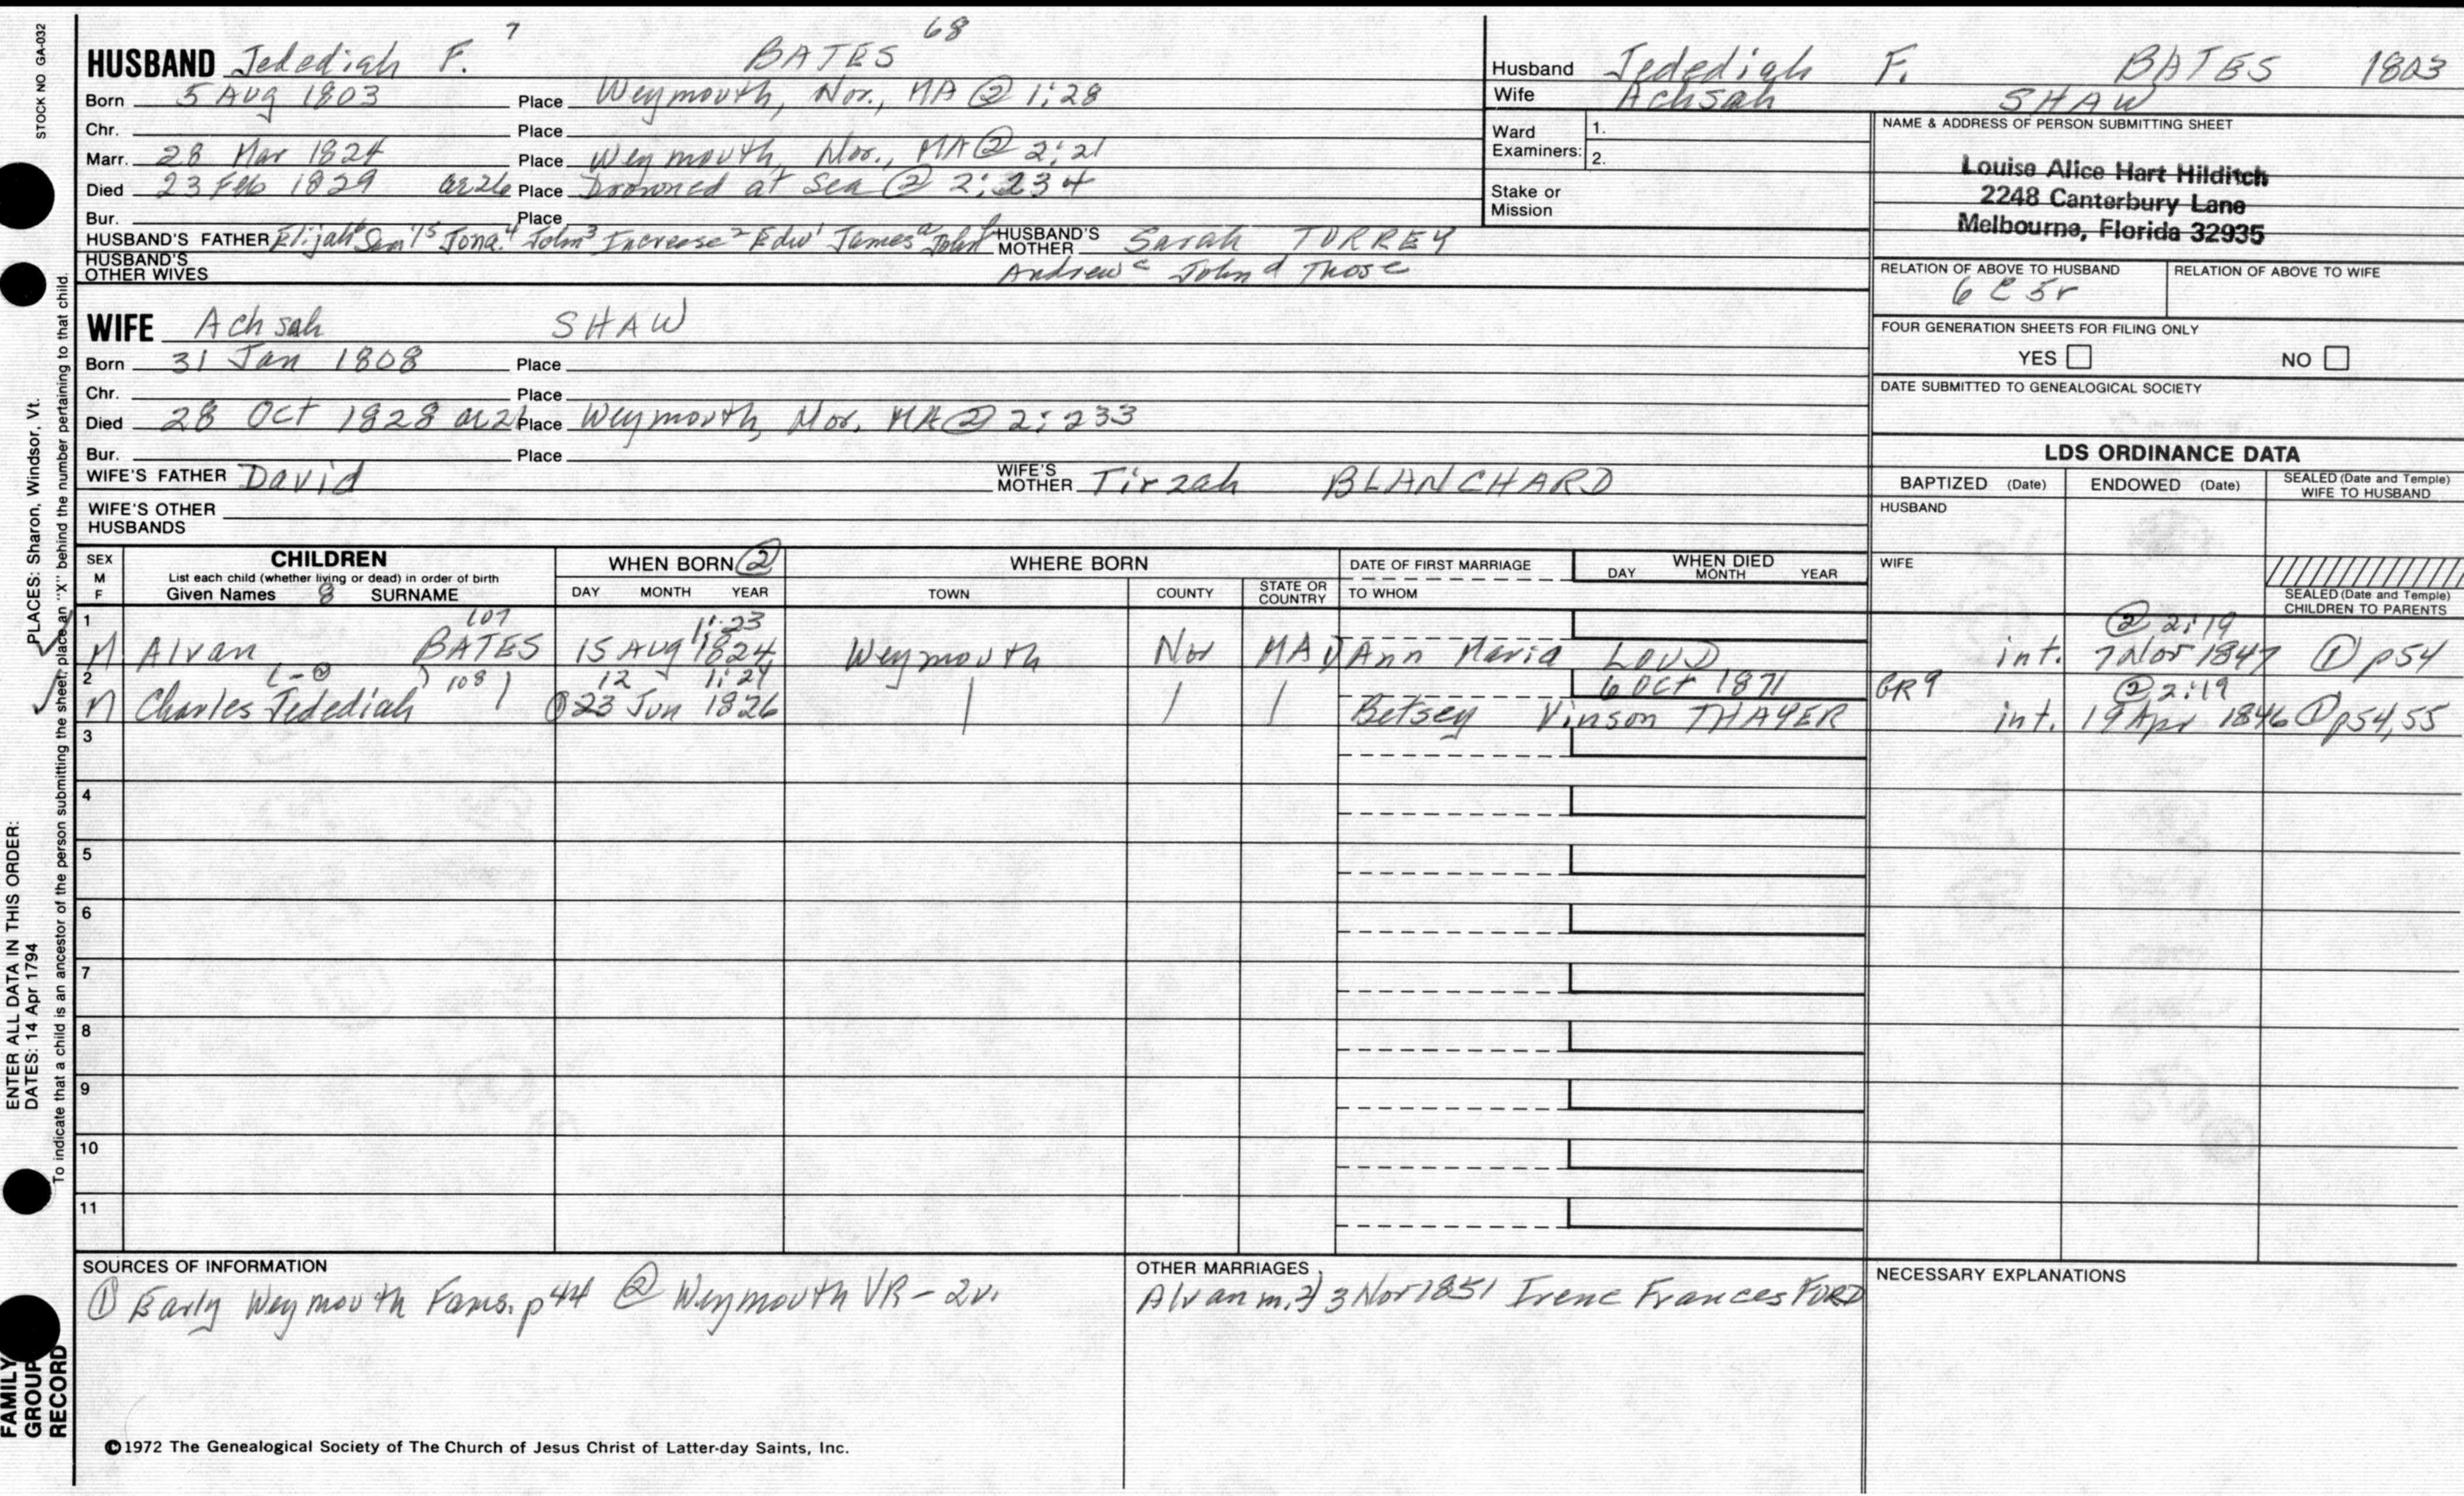 STOCK NO GA-032
7 68
HUSBAND Jedediah F. BATES
Born 5 Aug 1803 Place Weymouth, Nor., MA ② 1:28
Chr. Place
Marr. 28 Mar 1824 Place Weymouth, Nor., MA ② 2:21
Died 23 Feb 1829 ae26 Place Drowned at Sea ② 2:234
Bur. Place
HUSBAND'S FATHER Elijah⁶ Sam'l⁵ Jona.⁴ John³ Increase² Edw¹ James^a John^b HUSBAND'S MOTHER Sarah TORREY
HUSBAND'S OTHER WIVES Andrew^c John^d Thos^e
Husband Jedediah F. BATES 1803
Wife Achsah SHAW
Ward Examiners: 1.
2.
Stake or Mission
NAME & ADDRESS OF PERSON SUBMITTING SHEET
Louise Alice Hart Hilditch
2248 Canterbury Lane
Melbourne, Florida 32935
RELATION OF ABOVE TO HUSBAND RELATION OF ABOVE TO WIFE
6 C 5r
FOUR GENERATION SHEETS FOR FILING ONLY
YES NO
DATE SUBMITTED TO GENEALOGICAL SOCIETY
WIFE Achsah SHAW
Born 31 Jan 1808 Place
Chr. Place
Died 28 Oct 1828 ae21 Place Weymouth, Nor, MA ② 2:233
Bur. Place
WIFE'S FATHER David WIFE'S MOTHER Tirzah BLANCHARD
WIFE'S OTHER HUSBANDS
LDS ORDINANCE DATA
BAPTIZED (Date) ENDOWED (Date) SEALED (Date and Temple) WIFE TO HUSBAND
HUSBAND
WIFE
SEALED (Date and Temple) CHILDREN TO PARENTS
SEX M F CHILDREN WHEN BORN ② WHERE BORN DATE OF FIRST MARRIAGE WHEN DIED
List each child (whether living or dead) in order of birth DAY MONTH YEAR
Given Names 8 SURNAME DAY MONTH YEAR TOWN COUNTY STATE OR COUNTRY TO WHOM
1 107 1:23 ② 2:19
M Alvan BATES 15 Aug 1824 Weymouth Nor MA Ann Maria LOUD int. 7 Nov 1847 ① p54
2 108 12 1:24 6 Oct 1871 GR9 ② 2:19
M Charles Jedediah ① 23 Jun 1826 Betsey Vinson THAYER int. 19 Apr 1846 ① p54,55
3
4
5
6
7
8
9
10
11
SOURCES OF INFORMATION
① Early Weymouth Fams. p44 ② Weymouth VR - 2v.
OTHER MARRIAGES
Alvan m. 2) 3 Nov 1851 Irene Frances FORD
NECESSARY EXPLANATIONS
©1972 The Genealogical Society of The Church of Jesus Christ of Latter-day Saints, Inc.
FAMILY GROUP RECORD
ENTER ALL DATA IN THIS ORDER:
DATES: 14 Apr 1794 PLACES: Sharon, Windsor, Vt.
To indicate that a child is an ancestor of the person submitting the sheet, place an "X" behind the number pertaining to that child.